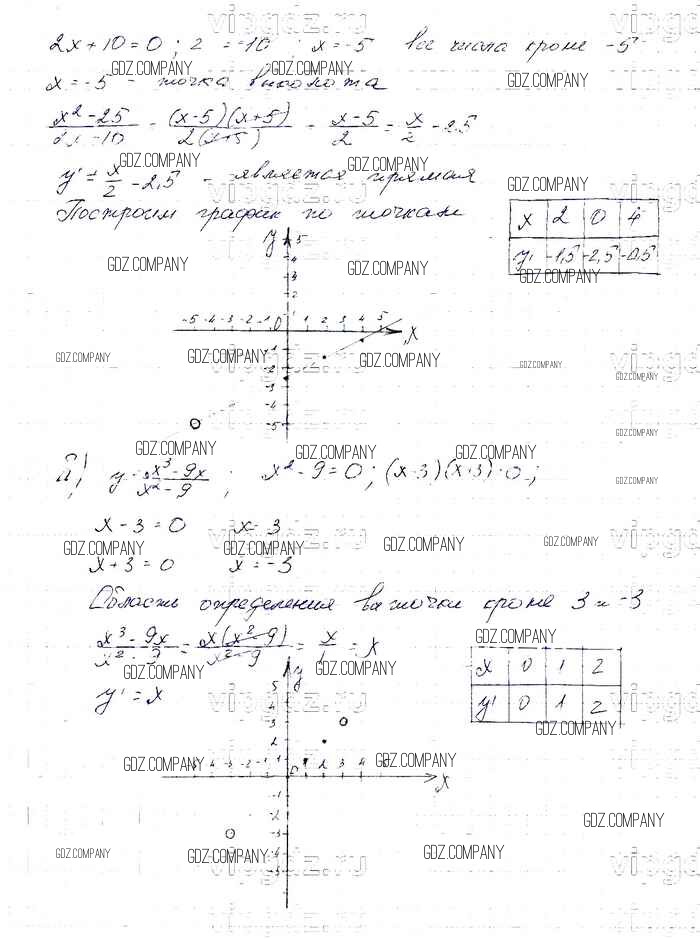 2x + 10 = 0 ; 2 = -10 ; x = -5 все числа кроме -5
x = -5 - точка
(x² - 25) = (x-5)(x+5)/2(x+5) = (x-5)/2 = x/2 - 2,5
y' = x/2 - 2,5 - является прямая
Построим график по точкам
x 2 0 4
y' -1,5 -2,5 -0,5
y 5
4
3
2
-5 -4 -3 -2 -1 0 1 2 3 4 5 x
-1
-2
-3
-4
-5
y = (x³ - 9x)/(x² - 9) ; x² - 9 = 0 ; (x-3)(x+3) = 0 ;
x - 3 = 0 x = 3
x + 3 = 0 x = -3
Область определения точки кроме 3 и -3
(x³ - 9x)/(x² - 9) = x(x² - 9)/(x² - 9) = x/1 = x
y' = x
x 0 1 2
y' 0 1 2
y
5
4
3
2
1
4 -3 -2 -1 0 1 2 3 4 x
-1
-2
-3
-4
-5
GDZ.COMPANY
vipgdz.ru